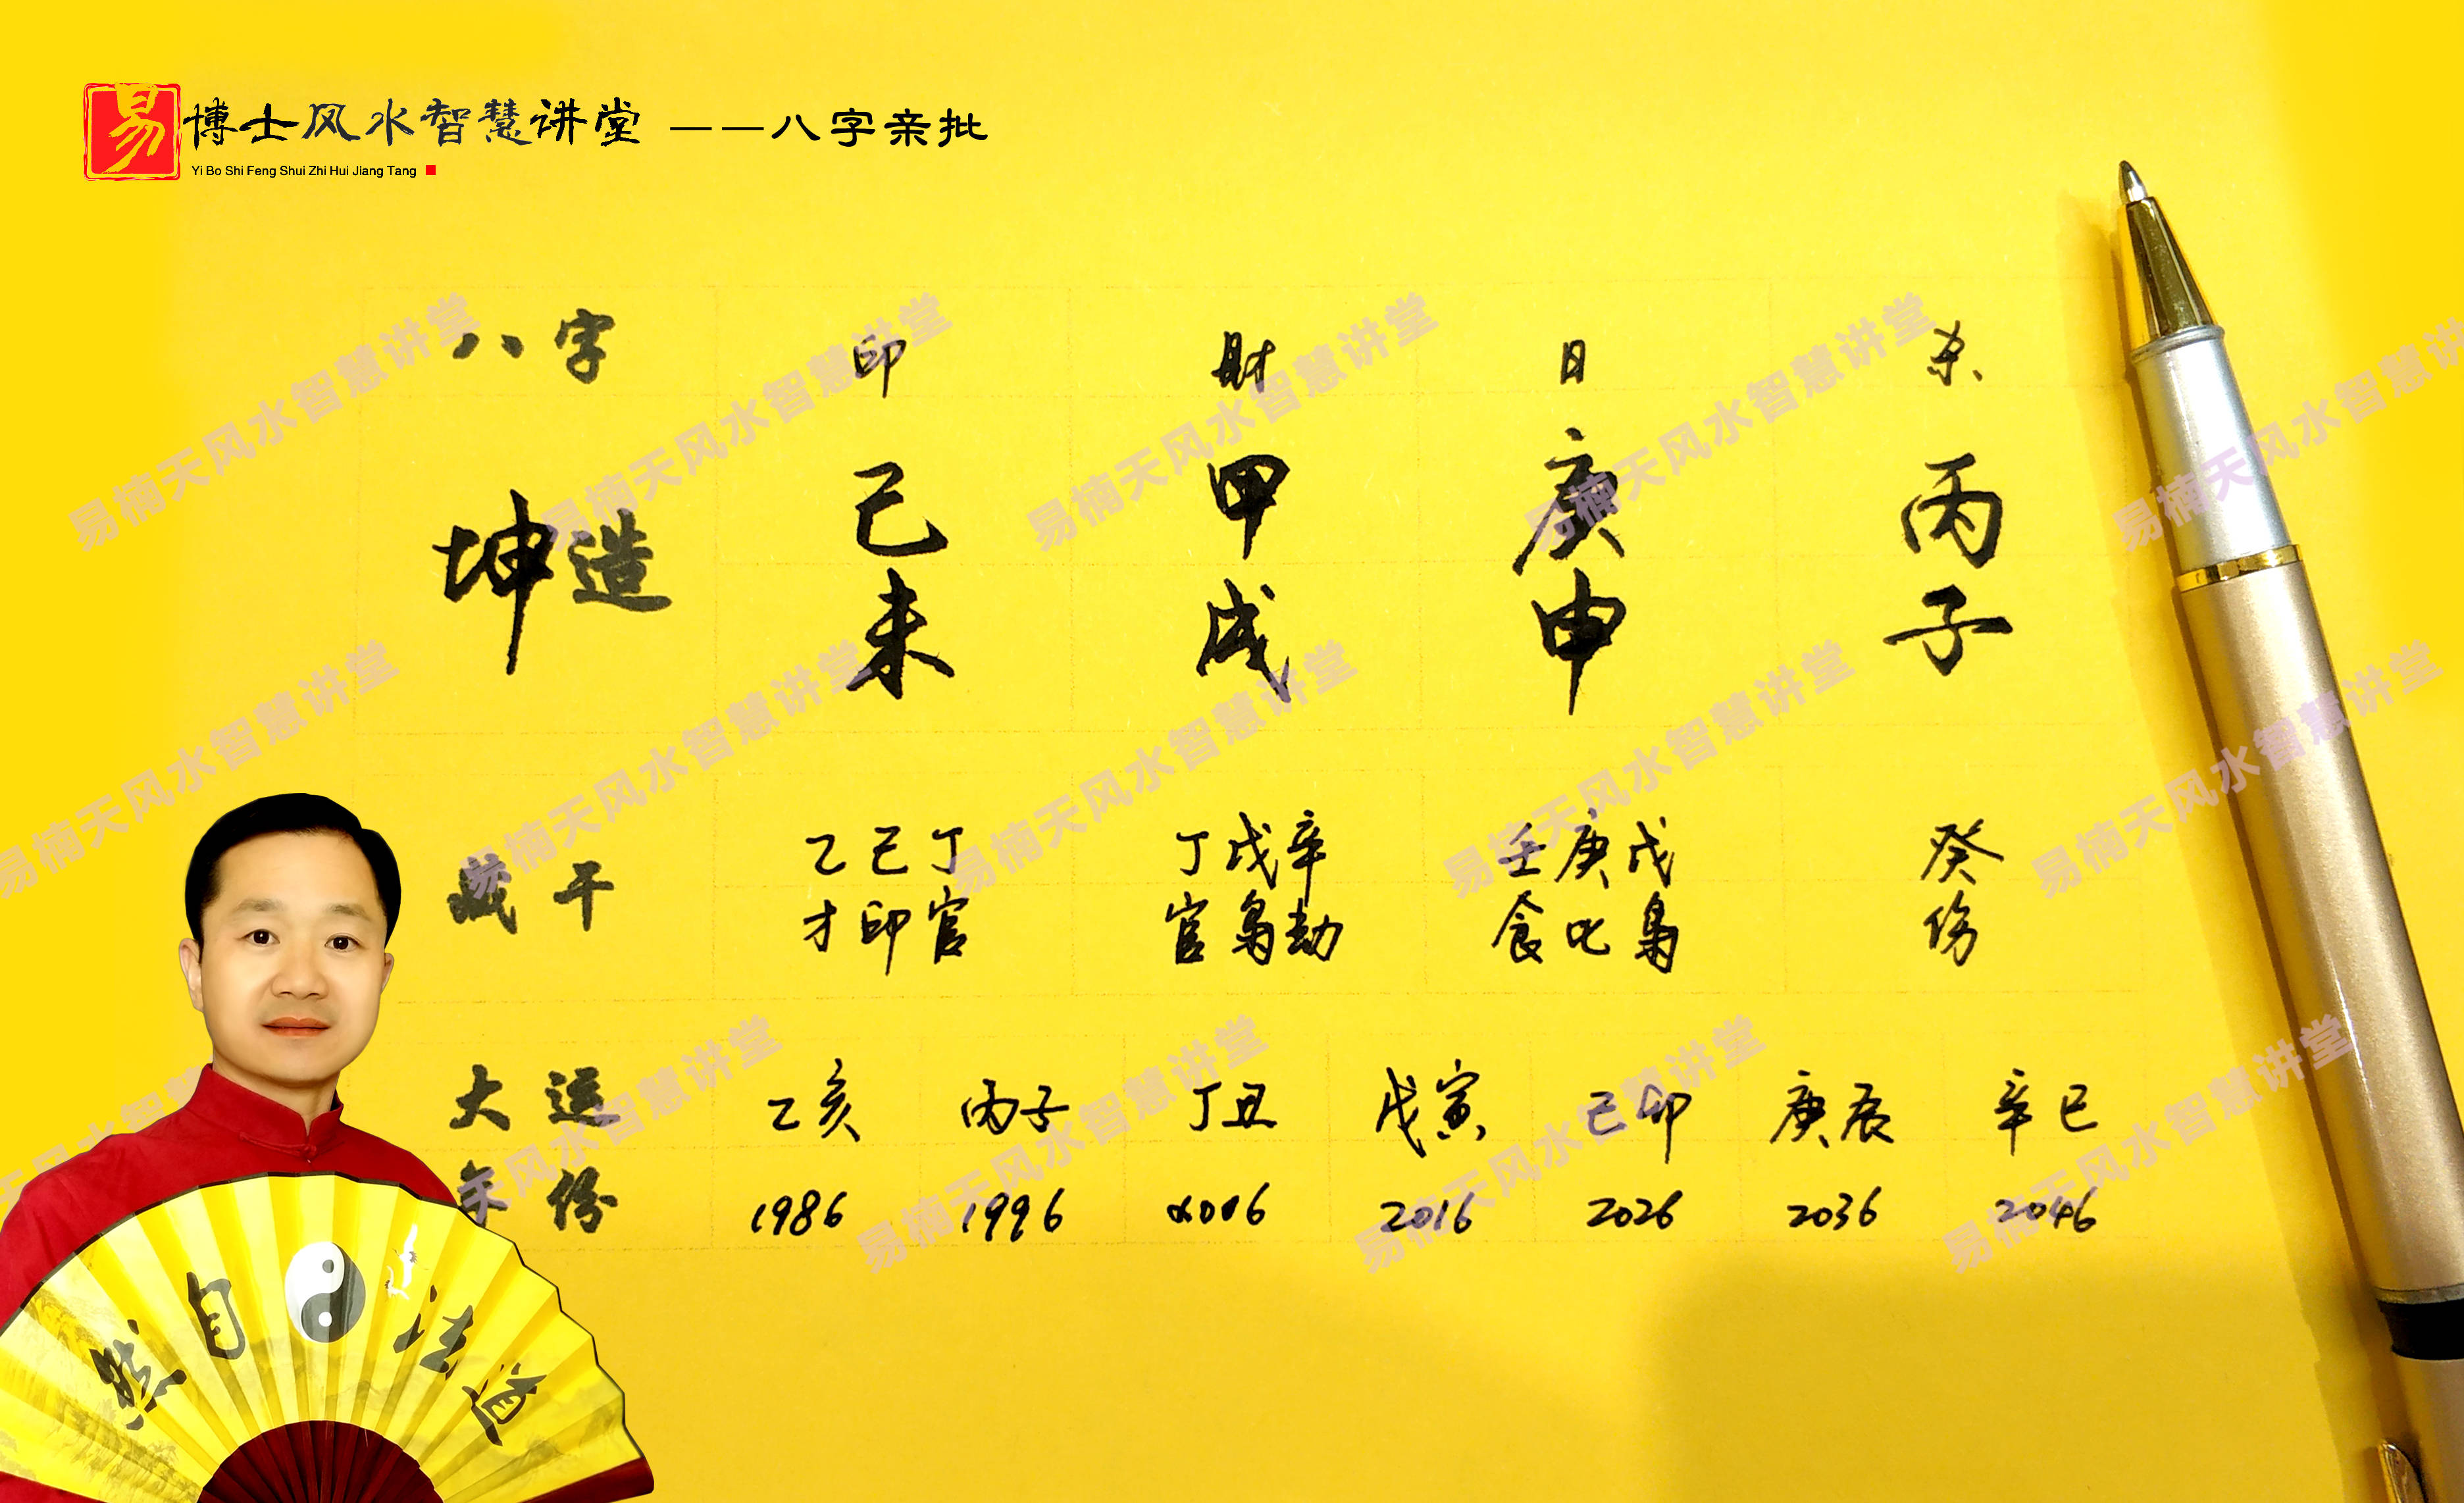 易 博士风水智慧讲堂 ——八字亲批
Yi Bo Shi Feng Shui Zhi Hui Jiang Tang
八字 印 财 日 杀
坤造 己 甲 庚 丙
未 戌 申 子
藏干 乙己丁 丁戊辛 壬庚戊 癸
才印官 官枭劫 食比枭 伤
大运 乙亥 丙子 丁丑 戊寅 己卯 庚辰 辛巳
年份 1986 1996 2006 2016 2026 2036 2046
然自法道
易楠天风水智慧讲堂